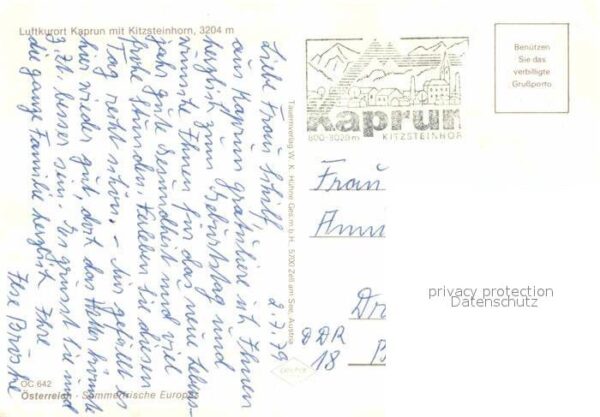 Luftkurort Kaprun mit Kitzsteinhorn, 3204 m
2.7.79
Liebe Frau Schilf,
aus Kaprun gratuliere ich Ihnen
herzlich zum Geburtstag und
wünsche Ihnen für das neue Lebens-
jahr gute Gesundheit und viel
frohe Stunden. Verleben Sie diesen
Tag recht schön. – Mir gefällt es
hier wieder gut, dort das Wetter könnte
z.Zt. besser sein. Es grüsst Sie und
die ganze Familie herzlich Ihre
Ilse
OC.642
Österreich - Sommerfrische Europas
Tauernverlag W. K. Hühne Ges.m.b.H., 5700 Zell am See, Austria
Kaprun
800-3029m KITZSTEINHOR
Benützen
Sie das
verbilligte
Grußporto
Frau
Dr
DDR
18
privacy protection
Datenschutz